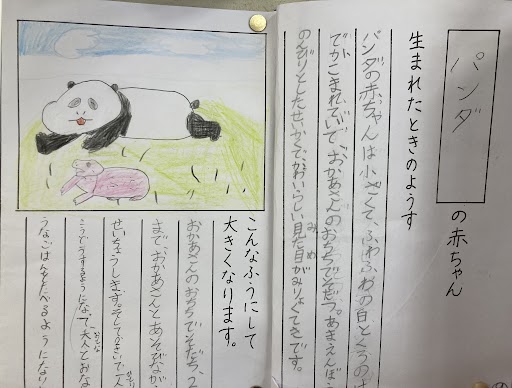 パンダの赤ちゃん
生まれたときのようす
パンダの赤ちゃんは小さくて、ふわふわの日とくろの
でかこまれていて、おかあさんのおちちでそだつ。あまえんぼう
のんびりとしたせいかくで、かわいらしい見た目がみりょくてきです。
こんなふうにして
大きくなります。
おかあさんのおちちでそだち、2
まで、おかあさんとあそびなが
せいちょうします。そして
こうどうするようになって、大人とおな
うなごはんをたべるようになり